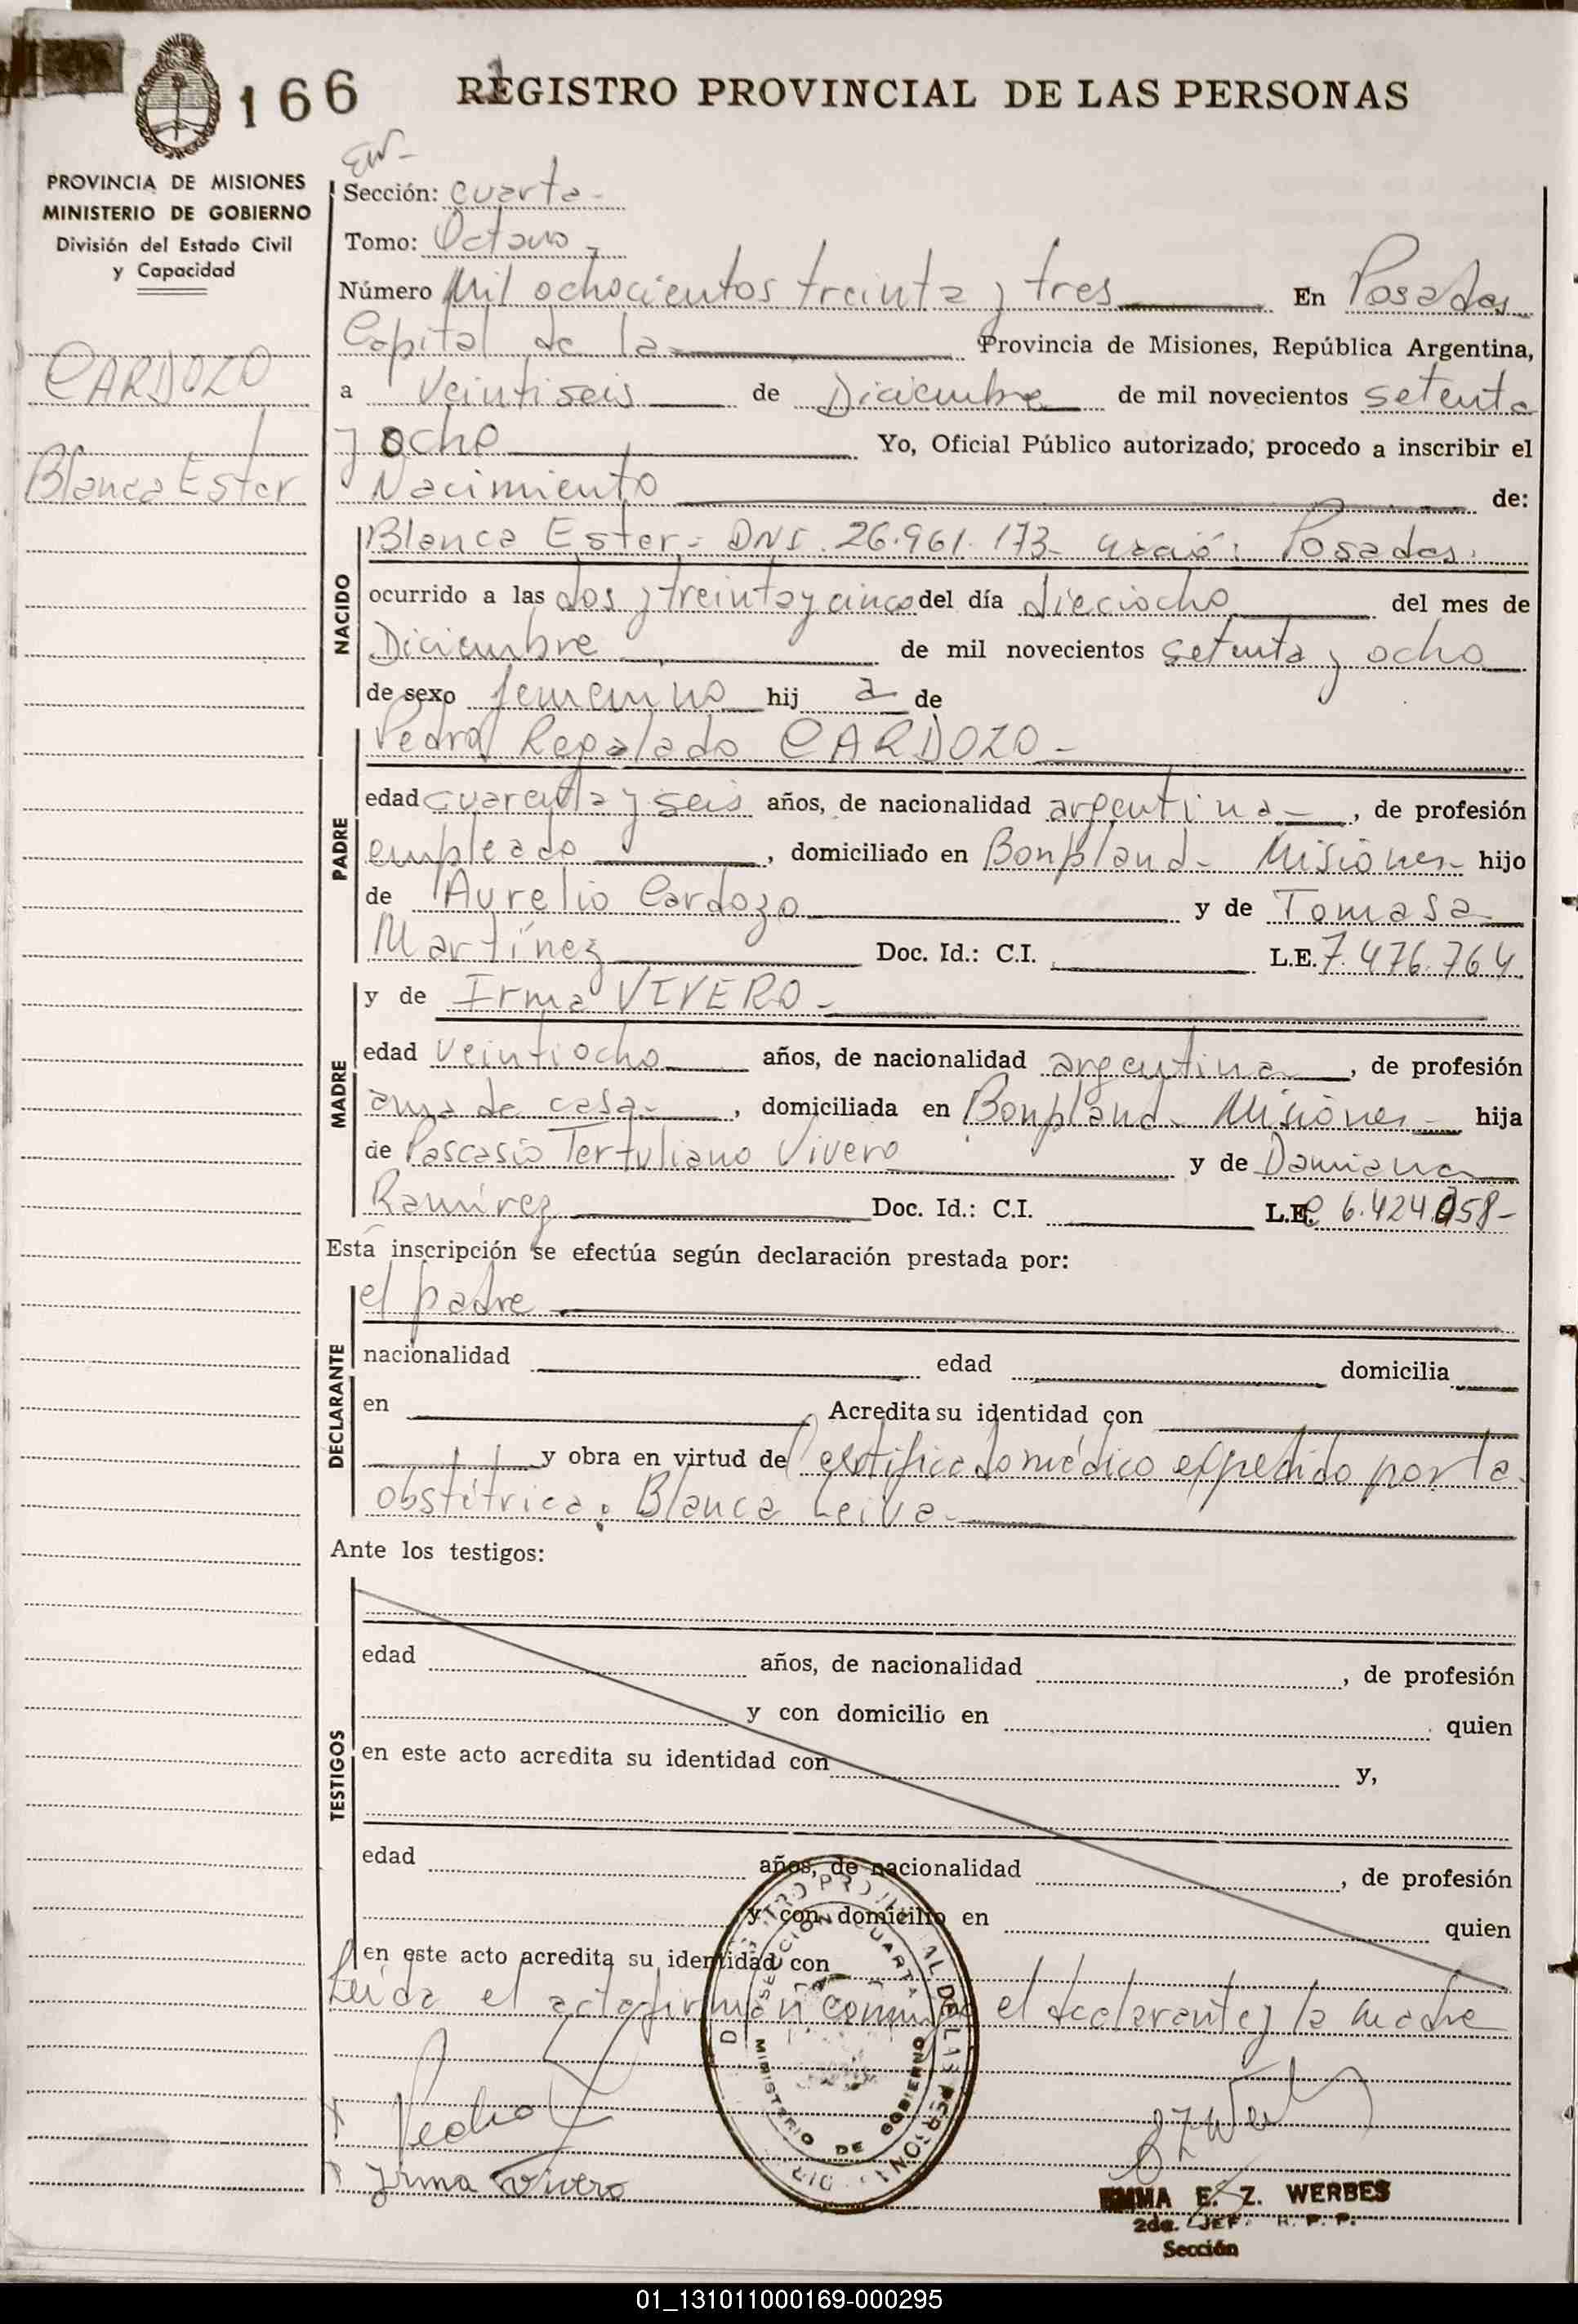 166 REGISTRO PROVINCIAL DE LAS PERSONAS
PROVINCIA DE MISIONES
MINISTERIO DE GOBIERNO
División del Estado Civil
y Capacidad
CARDOZO
Blanca Ester
Sección: Cuarta-
Tomo: Octavo-
Número Mil ochocientos treinta y tres En Posadas
Capital de la Provincia de Misiones, República Argentina,
a Veintiseis de Diciembre de mil novecientos setenta
y ocho Yo, Oficial Público autorizado, procedo a inscribir el
Nacimiento de:
NACIDO
Blanca Ester.- DNI. 26.961.173- nació: Posadas.
ocurrido a las dos y treinta y cinco del día dieciocho del mes de
Diciembre de mil novecientos setenta y ocho
de sexo femenino hij a de
PADRE
Pedro Regalado CARDOZO-
edad cuarenta y seis años, de nacionalidad argentina, de profesión
empleado, domiciliado en Bonpland- Misiones- hijo
de Aurelio Cardozo y de Tomasa
Martínez Doc. Id.: C.I. L.E. 7.476.764
MADRE
y de Irma VIVERO-
edad veintiocho años, de nacionalidad argentina, de profesión
ama de casa-, domiciliada en Bonpland- Misiones- hija
de Pascasio Tertuliano Vivero y de Damiana
Ramírez Doc. Id.: C.I. L.E. 6.424.058-
Esta inscripción se efectúa según declaración prestada por:
DECLARANTE
el padre
nacionalidad edad domicilia
en Acredita su identidad con
y obra en virtud de certificado médico expedido por la
obstétrica: Blanca Leiva-
Ante los testigos:
TESTIGOS
edad años, de nacionalidad, de profesión
y con domicilio en quien
en este acto acredita su identidad con y,
edad años, de nacionalidad, de profesión
y con domicilio en quien
en este acto acredita su identidad con
Leída el acta firman conmigo el declarante y la madre
SECCION CUARTA
MINISTERIO DE GOBIERNO
Pedro
Irma Vivero
EMMA E. Z. WERBES
2da. JEF. R. P. P.
Sección
01_131011000169-000295